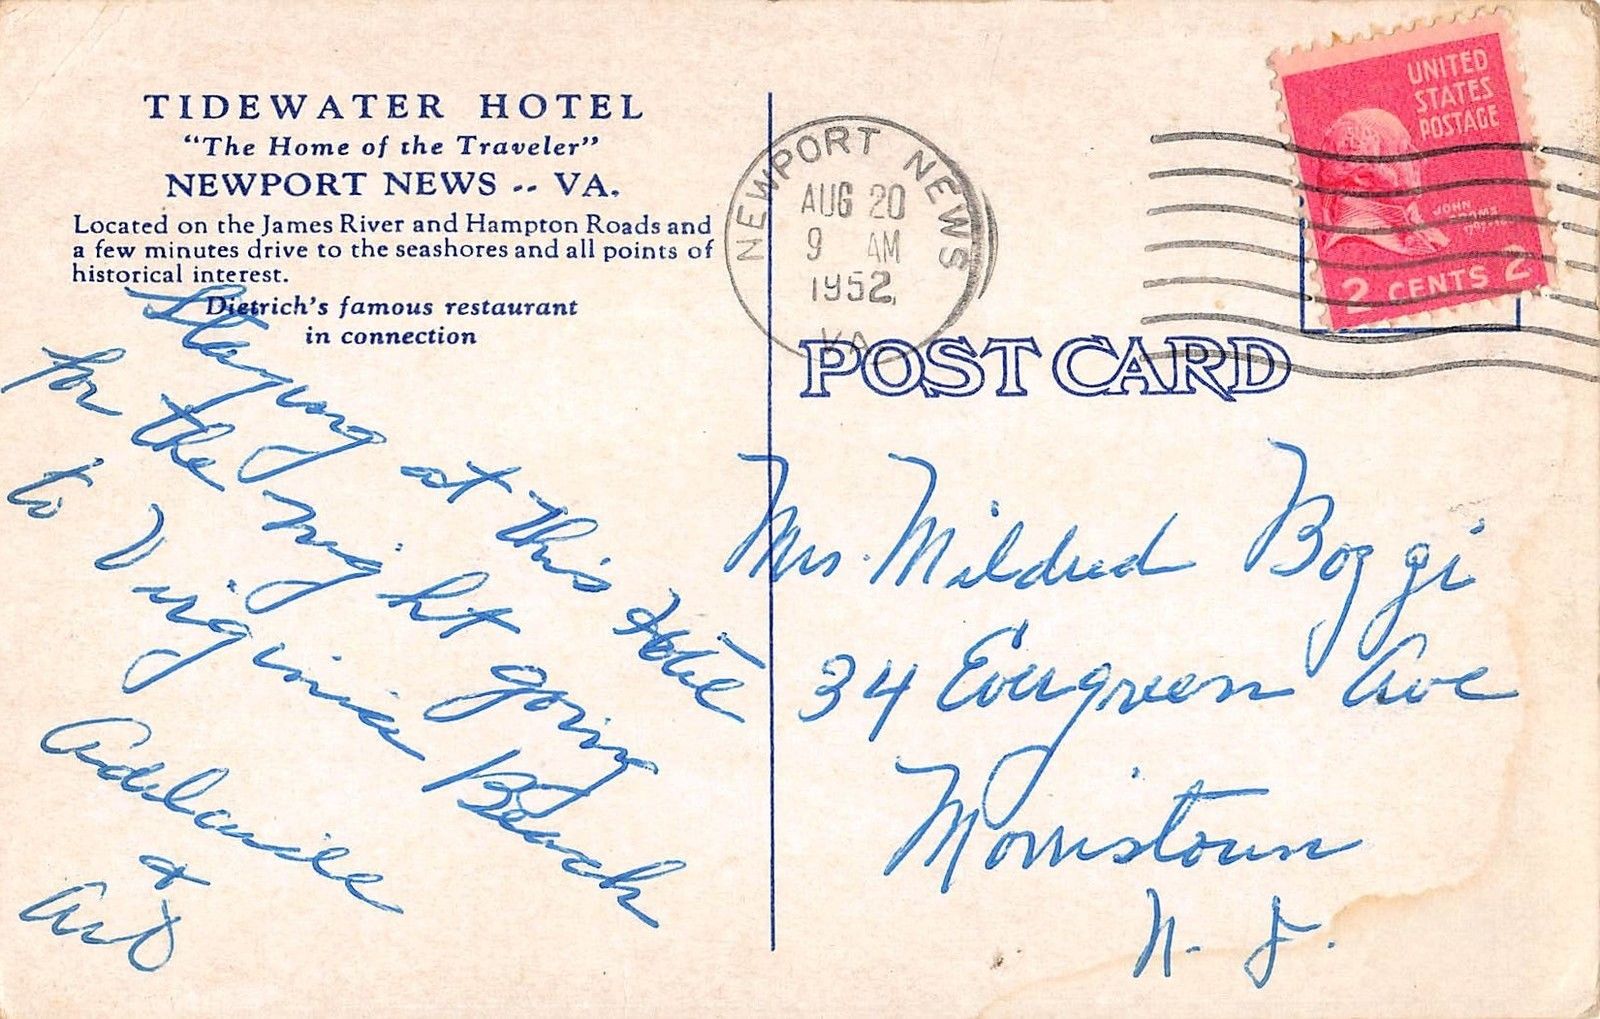 TIDEWATER HOTEL
"The Home of the Traveler"
NEWPORT NEWS -- VA.
Located on the James River and Hampton Roads and
a few minutes drive to the seashores and all points of
historical interest.
Dietrich's famous restaurant
in connection
Staying at this Hotel
for the night going
to Virginia Beach
&
Art
NEWPORT NEWS
AUG 20
9 AM
1952
VA
UNITED
STATES
POSTAGE
JOHN
2 CENTS 2
POST CARD
Mrs. Mildred Boggi
34 Evergreen Ave
Morristown
N. J.